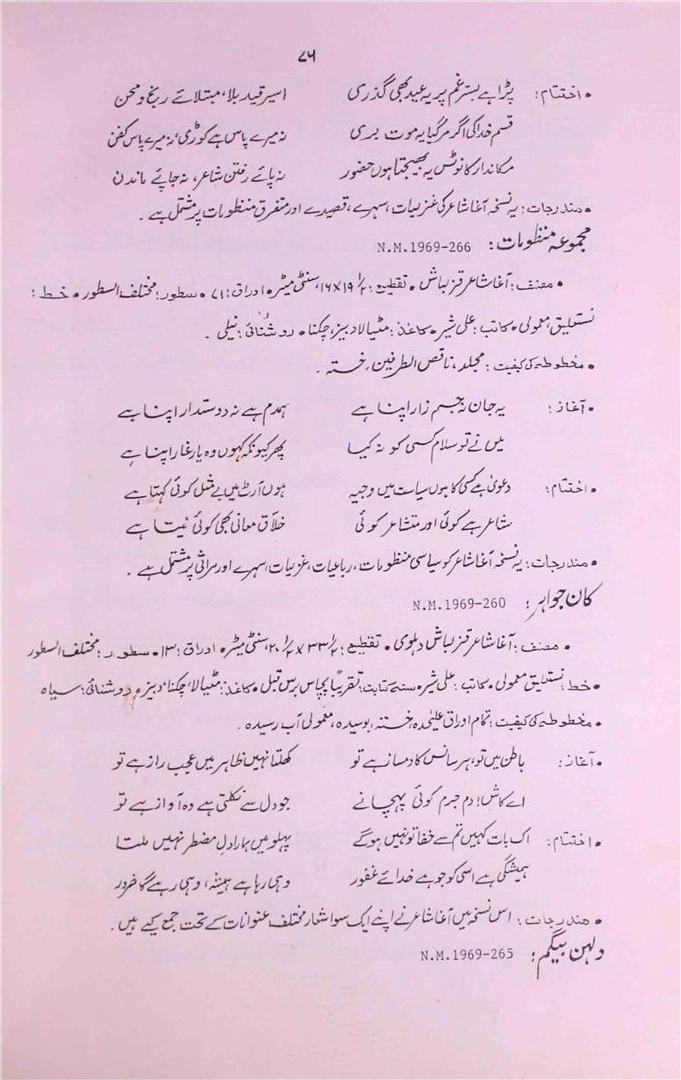 ۷۶
• اختتام: پڑا ہے بسترِ غم پر یہ عید بھی گذری اسیر قید بلا، مبتلائے رنج و محن
قسم خدا کی اگر مر گیا یہ موت بری نہ میرے پاس ہے کوڑی، نہ میرے پاس کفن
مکاندار کا نوٹس یہ بھیجتا ہوں حضور نہ پائے رفتن شاعر، نہ جائے ماندن
• مندرجات: یہ نسخہ آغا شاعر کی غزلیات، سہرے، قصیدے اور متفرق منظومات پر مشتمل ہے۔
مجموعہ منظومات: N.M.1969-266
• مصنف: آغا شاعر قزلباش • تقطیع: ۱/۲ ۱۹×۱۶، سنٹی میٹر • اوراق: ۷۱ • سطور: مختلف السطور • خط:
نستعلیق معمولی • کاتب: علی شیر • کاغذ: مٹیالا دبیز، چکنا • روشنائی: نیلی۔
• مخطوطہ کی کیفیت: مجلد، ناقص الطرفین، خستہ۔
• آغاز: یہ جان نہ جسم زار اپنا ہے ہمدم ہے نہ دوستدار اپنا ہے
میں نے تو سلام کسی کو نہ کیا پھر کیونکر کہوں وہ یارِ غار اپنا ہے
• اختتام: دعویٰ ہے کسی کا ہوں سیاست میں وجیہ ہوں آرٹ میں بے مثل کوئی کہتا ہے
شاعر ہے کوئی اور متشاعر کوئی خلاق معانی بھی کوئی نیتا ہے
• مندرجات: یہ نسخہ آغا شاعر کو سیاسی منظومات، رباعیات، غزلیات، سہرے اور مراثی پر مشتمل ہے۔
کان جواہر: N.M.1969-260
• مصنف: آغا شاعر قزلباش دہلوی • تقطیع: ۱/۲ ۳۳ × ۱/۲ ۲۰، سنٹی میٹر • اوراق: ۱۳ • سطور: مختلف السطور
• خط: نستعلیق معمولی • کاتب: علی شیر • سنہ کتابت: تقریباً پچاس برس قبل • کاغذ: مٹیالا، چکنا، دبیز • روشنائی: سیاہ
• مخطوطہ کی کیفیت: تمام اوراق علیٰحدہ، خستہ، بوسیدہ، معمولی آب رسیدہ۔
• آغاز: باطن میں تو، ہر سانس کا دمساز ہے تو کھلتا نہیں ظاہر میں عجب راز ہے تو
اے کاش! دم جرم کوئی پہچانے جو دل سے نکلتی ہے وہ آواز ہے تو
• اختتام: اک بات کہیں تم سے خفا تو نہیں ہو گے پہلو میں ہمارا دلِ مضطر نہیں ملتا
ہمیشگی ہے اسی کو جو ہے خدائے غفور وہی رہا ہے ہمیشہ، وہی رہے گا ضرور
• مندرجات: اس نسخہ میں آغا شاعر نے اپنے ایک سو اشعار مختلف عنوانات کے تحت جمع کیے ہیں۔
دلہن بیگم: N.M.1969-265